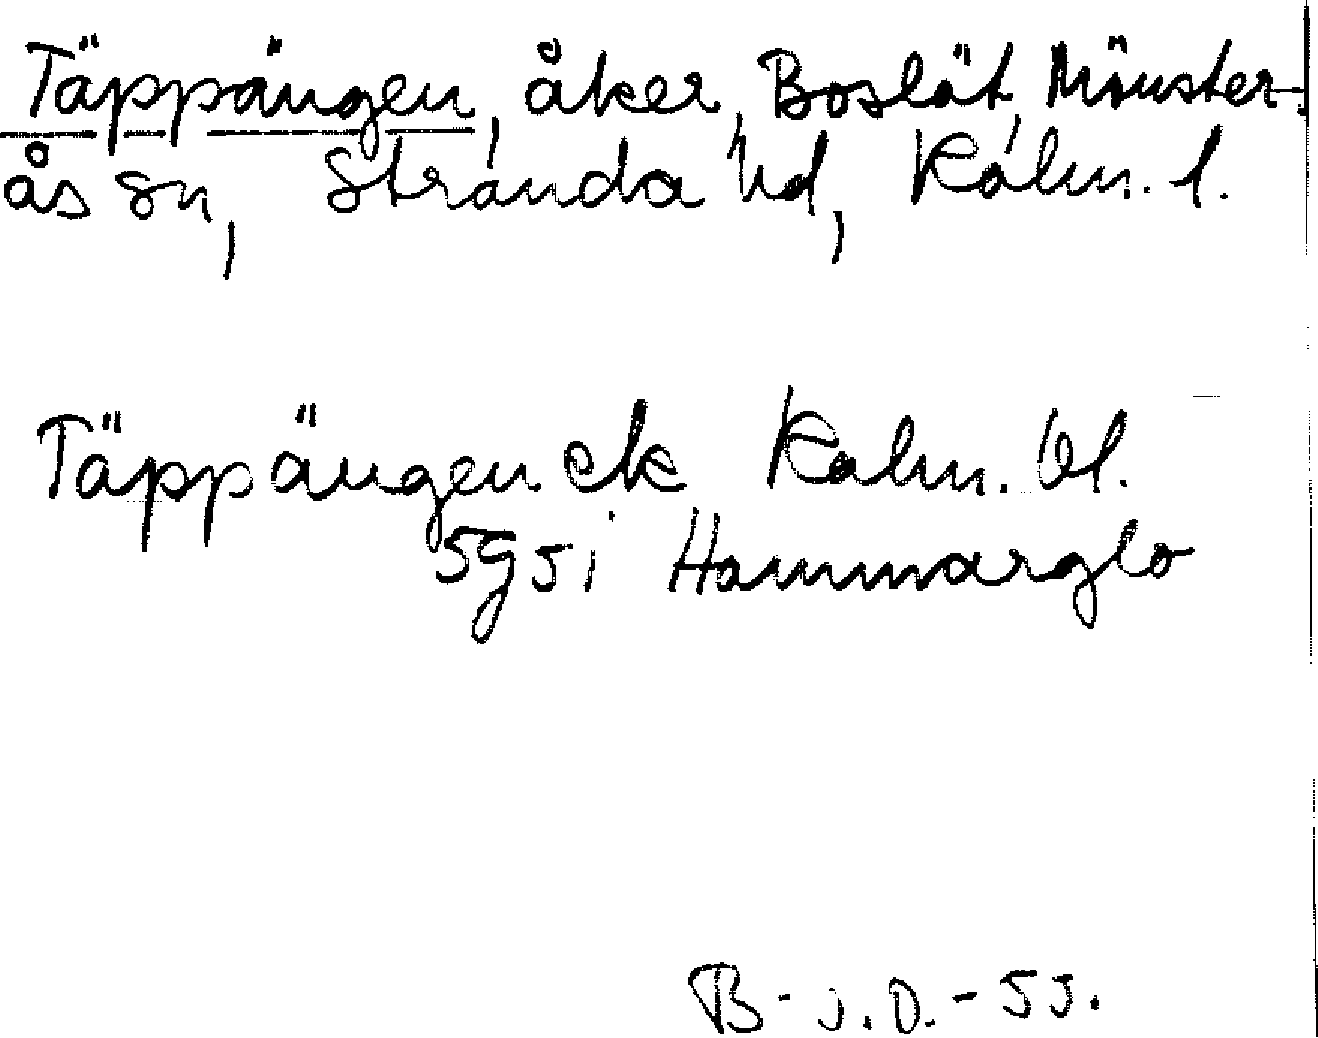 Täppängen, åker, Boslät, Mönster-
ås sn, Stranda hd, Kalm. l.
Täppängen ek Kalm. Vl.
595 i Hammarglo
B-J.O.-55.